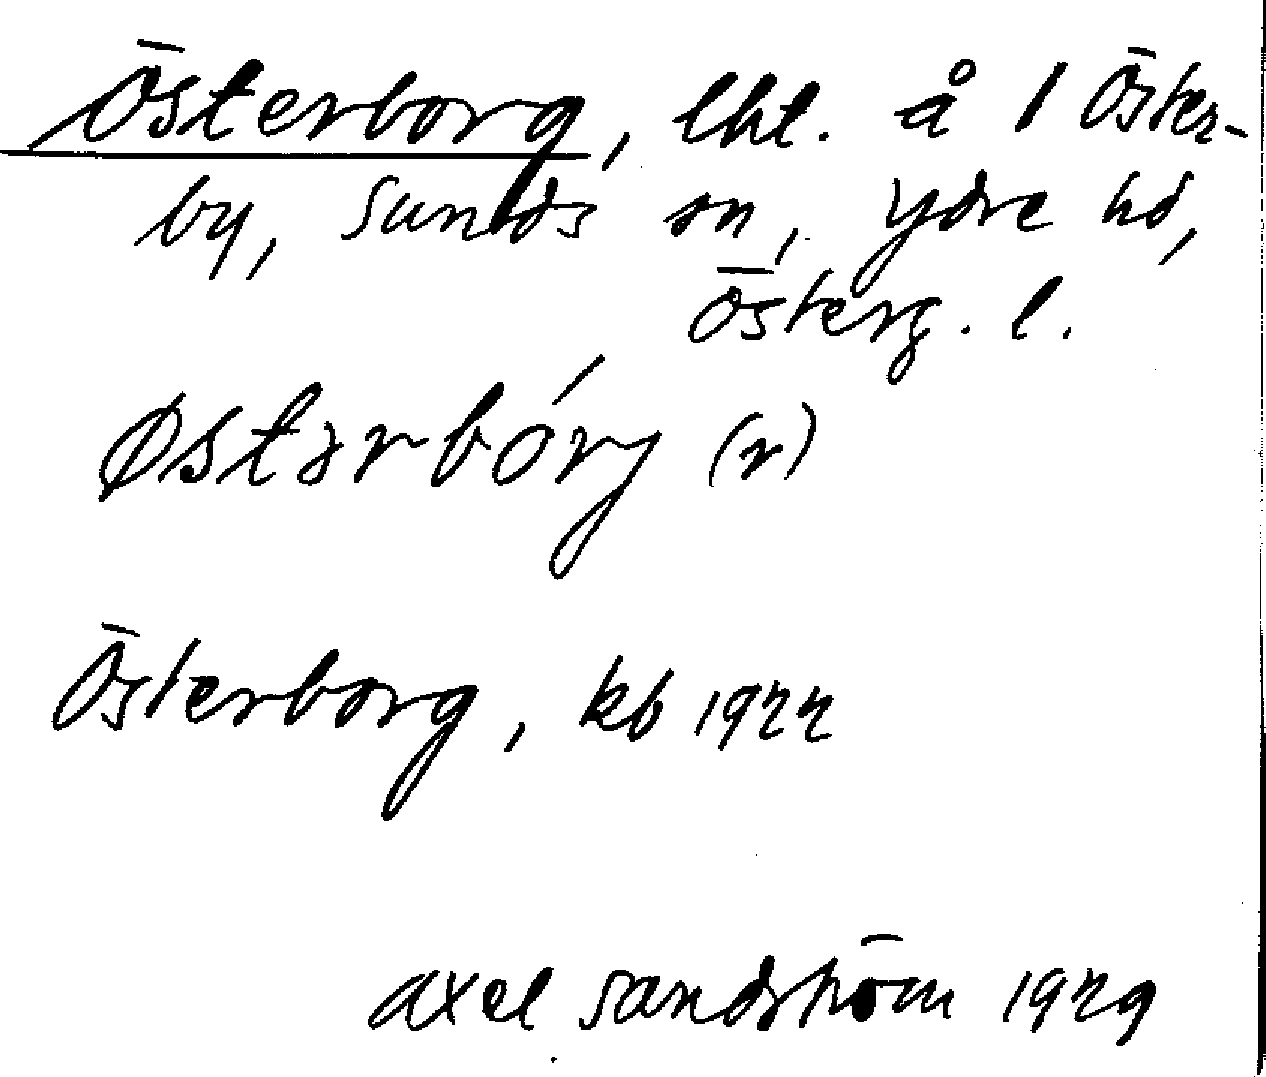 Österborg, lht. å 1 Öster-
by, Sunds sn, Ydre hd,
Österg. l.
østərbórj (r)
Österborg, kb 1922
Axel Sandström 1929